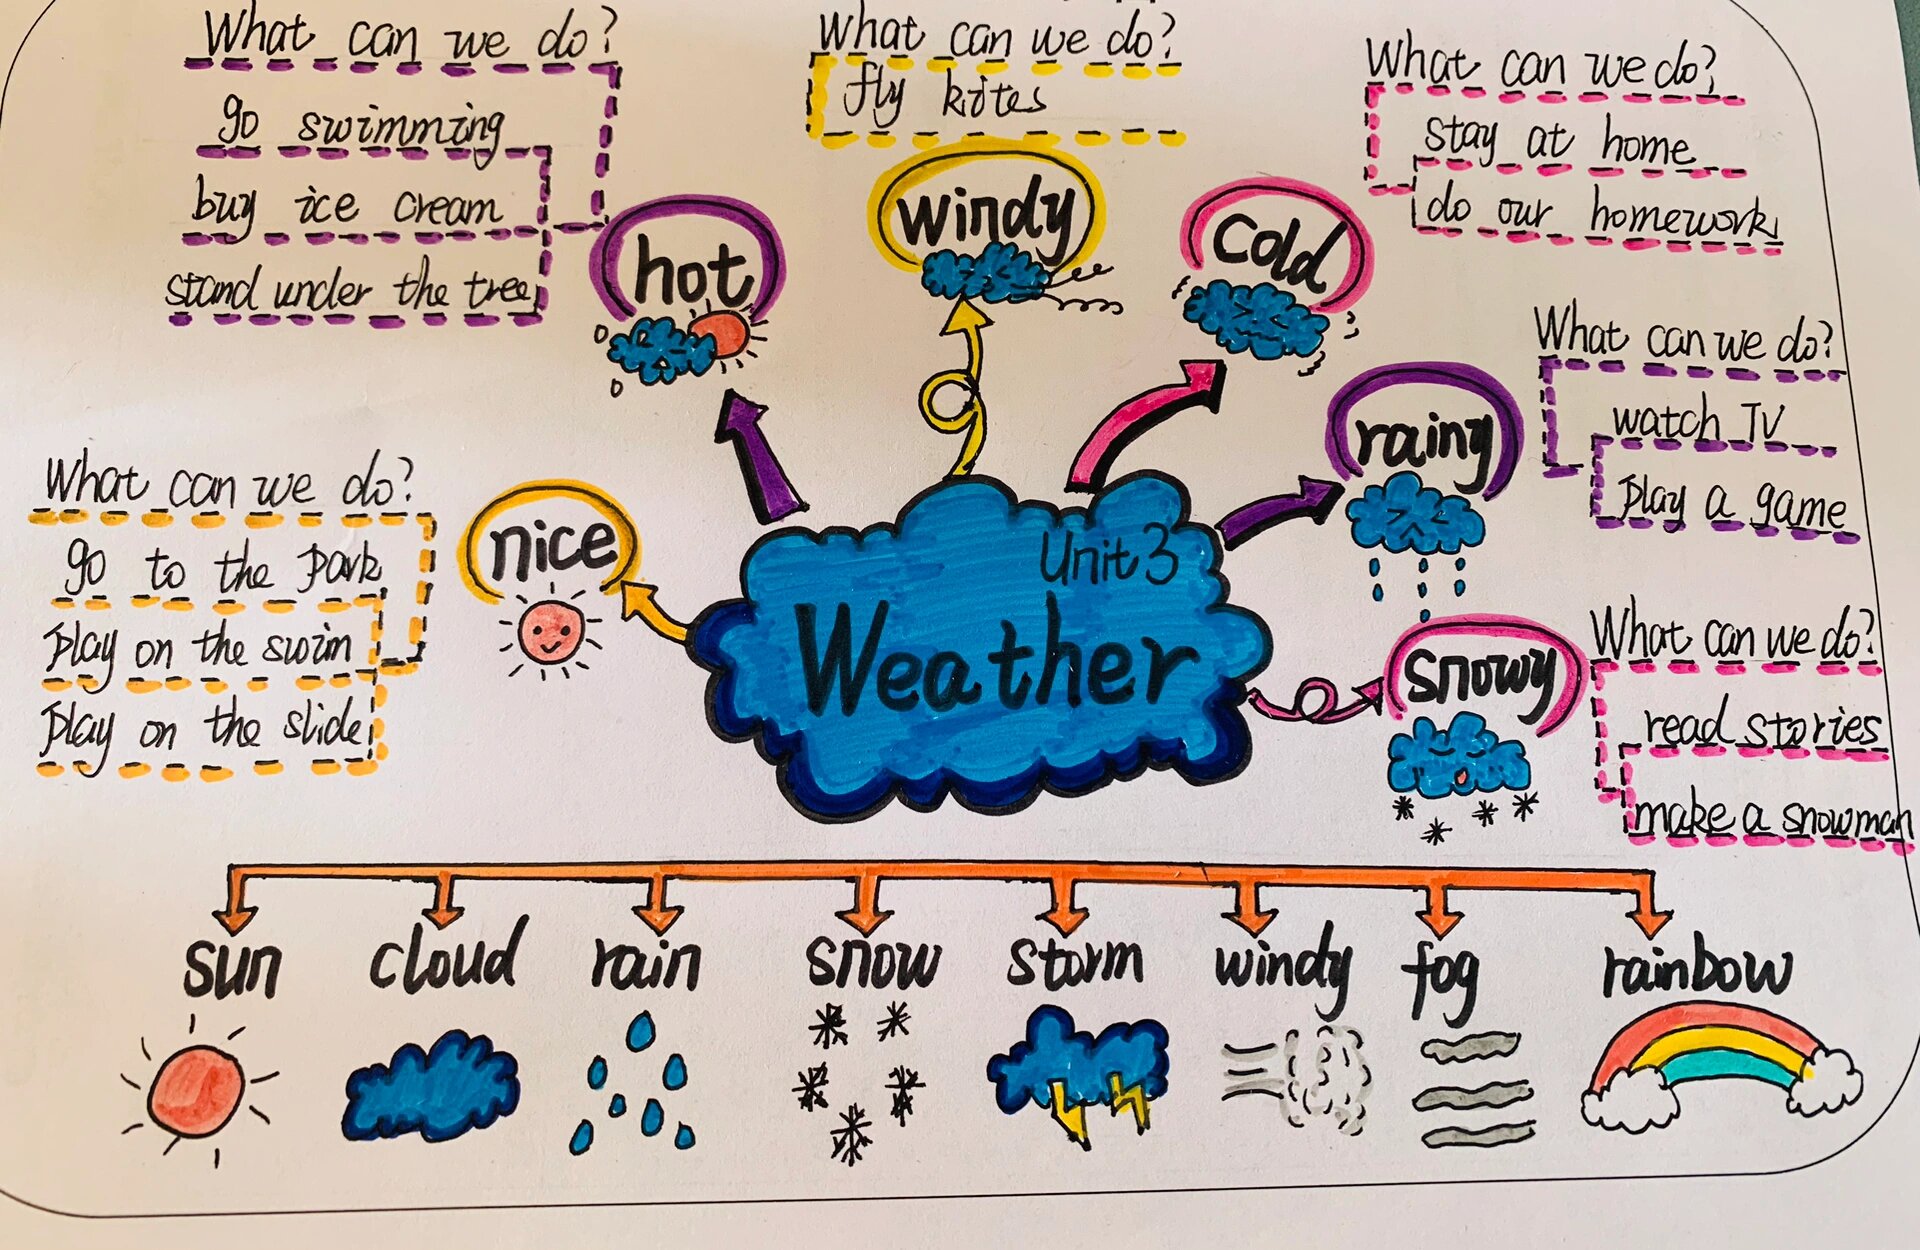 What can we do?
go swimming
buy ice cream
stand under the tree
hot
What can we do?
fly kites
windy
What can we do?
stay at home
do our homework
cold
What can we do?
watch TV
play a game
rainy
What can we do?
go to the park
play on the swim
play on the slide
nice
Unit 3
Weather
What can we do?
read stories
make a snowman
snowy
sun cloud rain snow storm windy fog rainbow